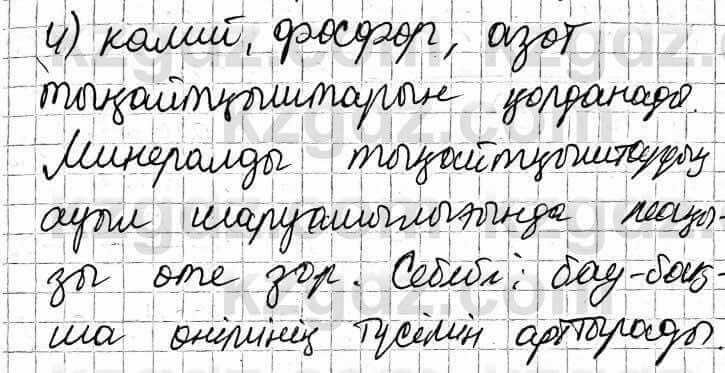 4) калий, фосфор, азот
тыңайтқыштарын қолданады.
Минералды тыңайтқыштардың
ауыл шаруашылығында маңы-
зы өте зор. Себебі: бау-бақ-
ша өнімінің түсімін арттырады.